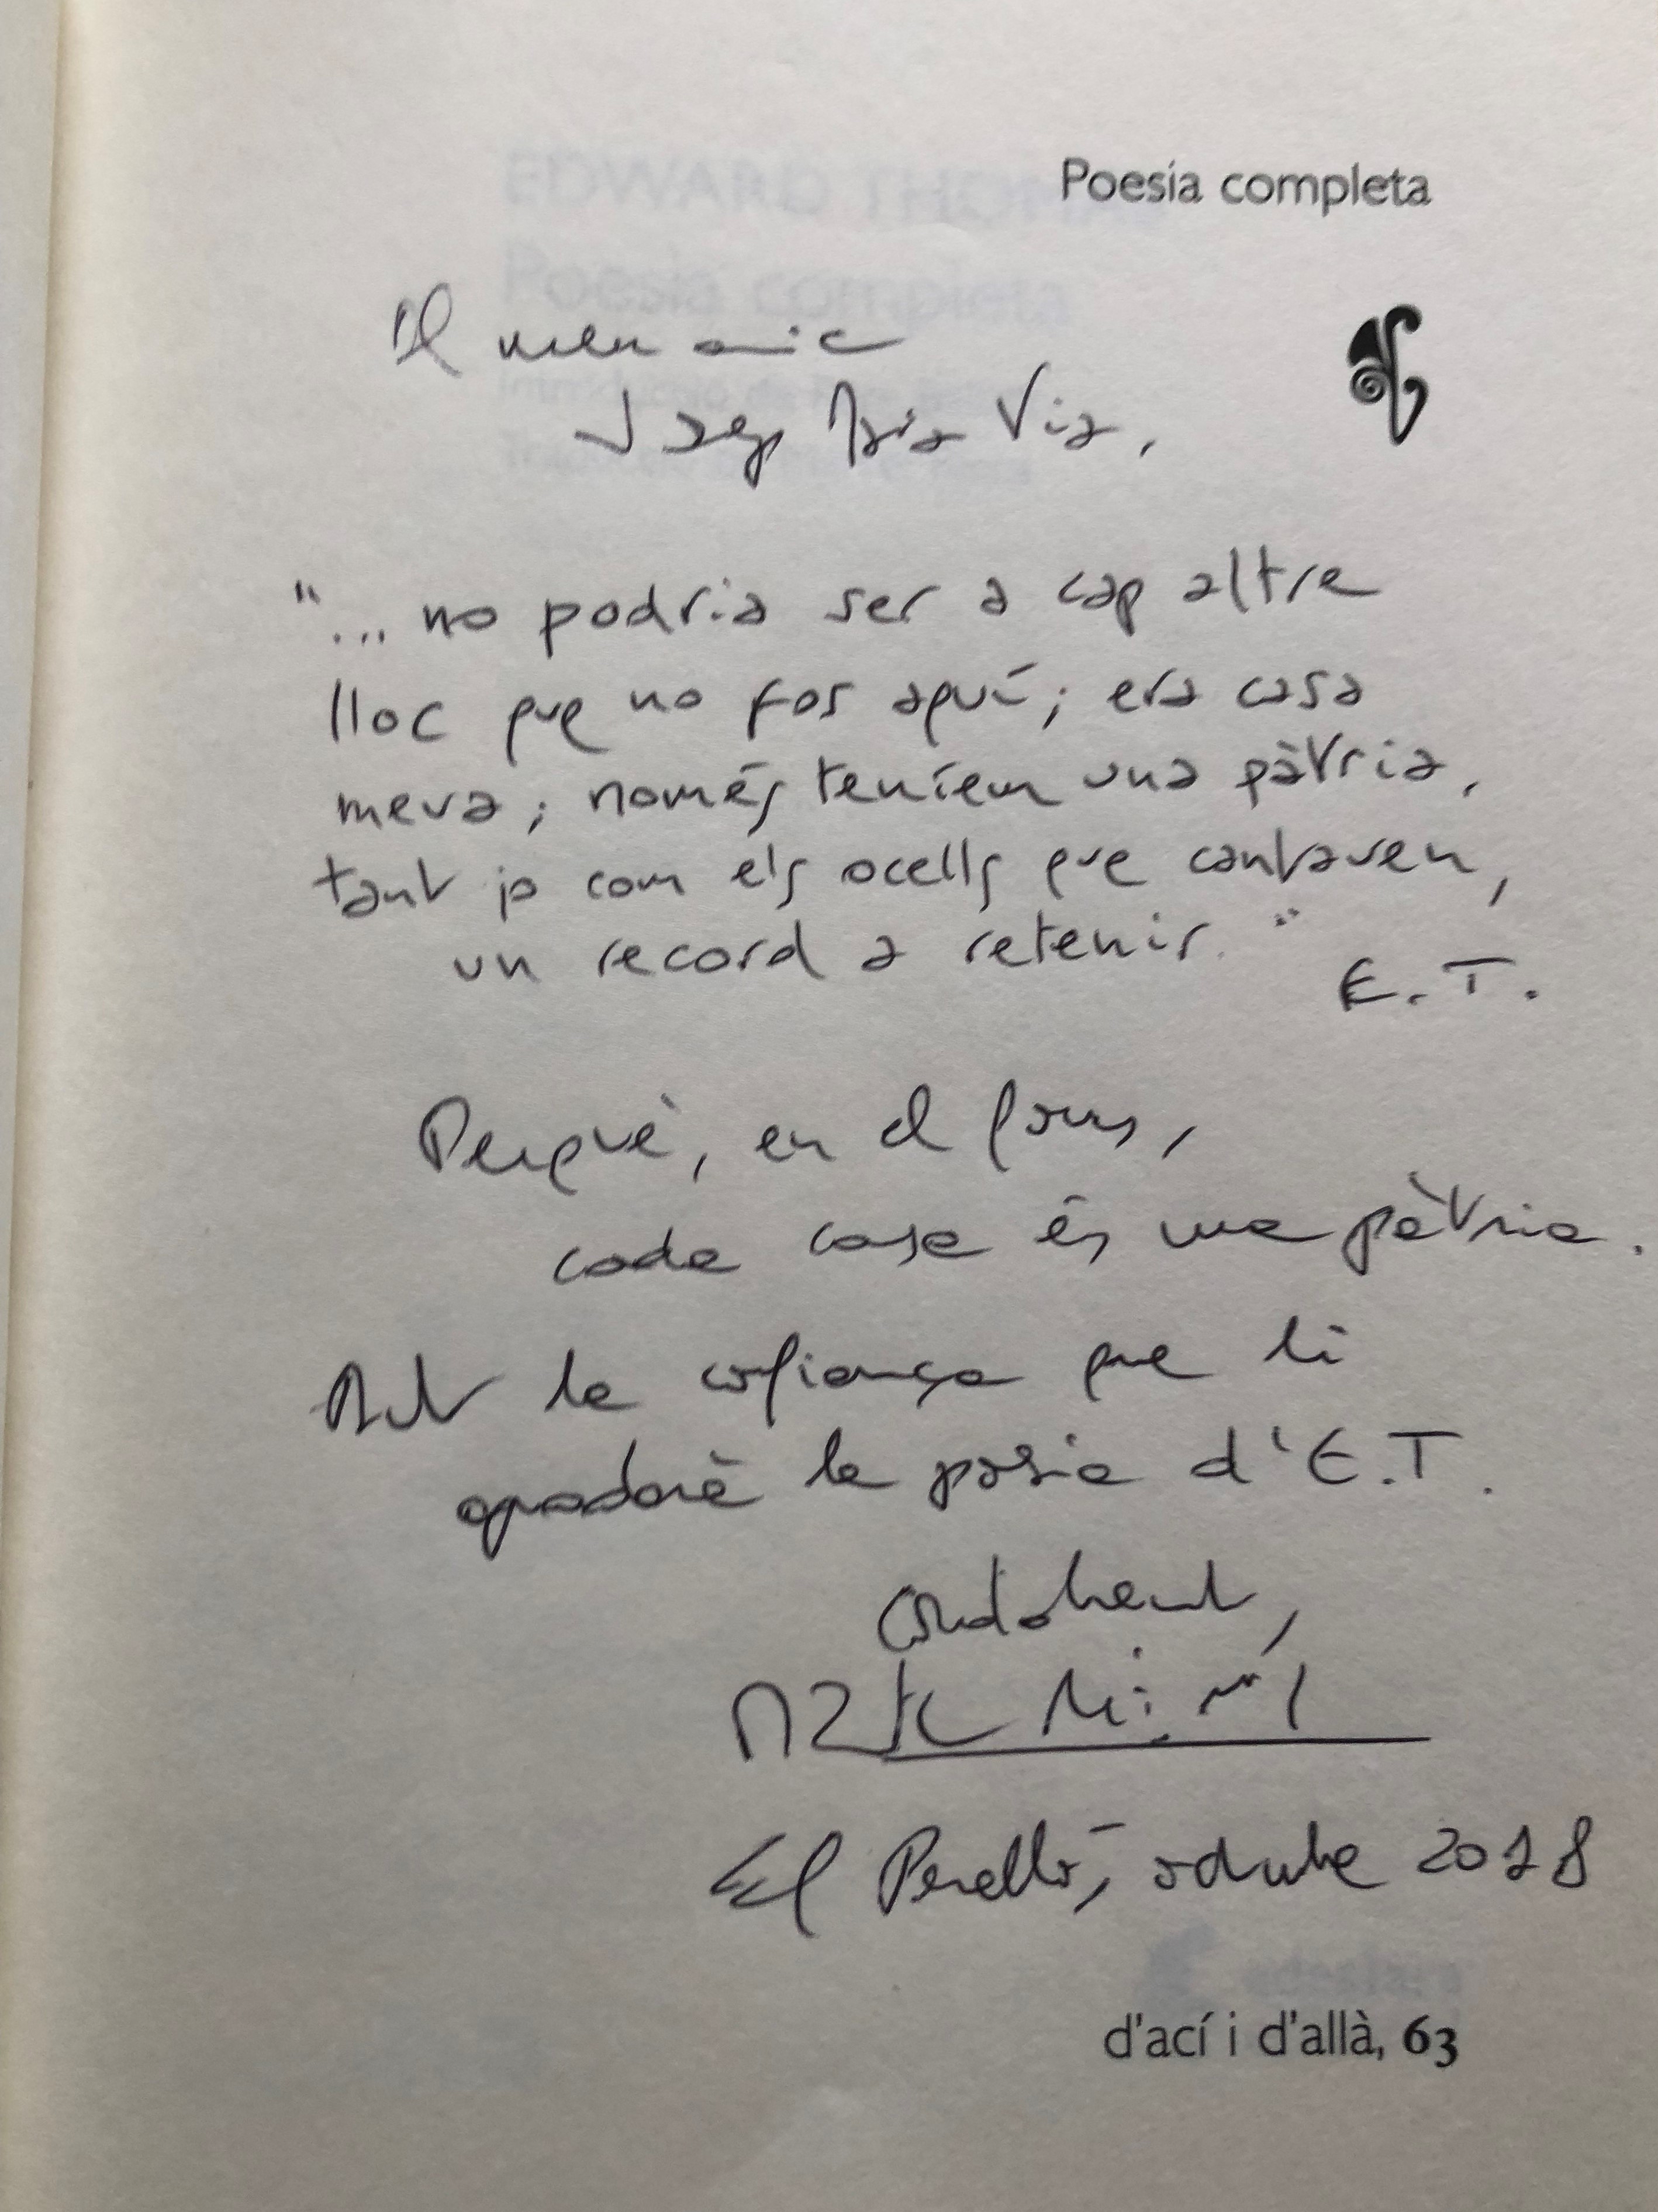 Poesia completa
Al meu amic
Josep Maria Via,
"... no podria ser a cap altre
lloc que no fos aquí; era casa
meva; només teníem una pàtria,
tant jo com els ocells que cantaven,
un record a retenir."
E. T.
Perquè, en el fons,
cada casa és una pàtria.
Amb la confiança que li
agradarà la poesia d'E.T.
Cordialment,
El Perelló, octubre 2018
d'ací i d'allà, 63
EDWARD THOM
Poesia completa